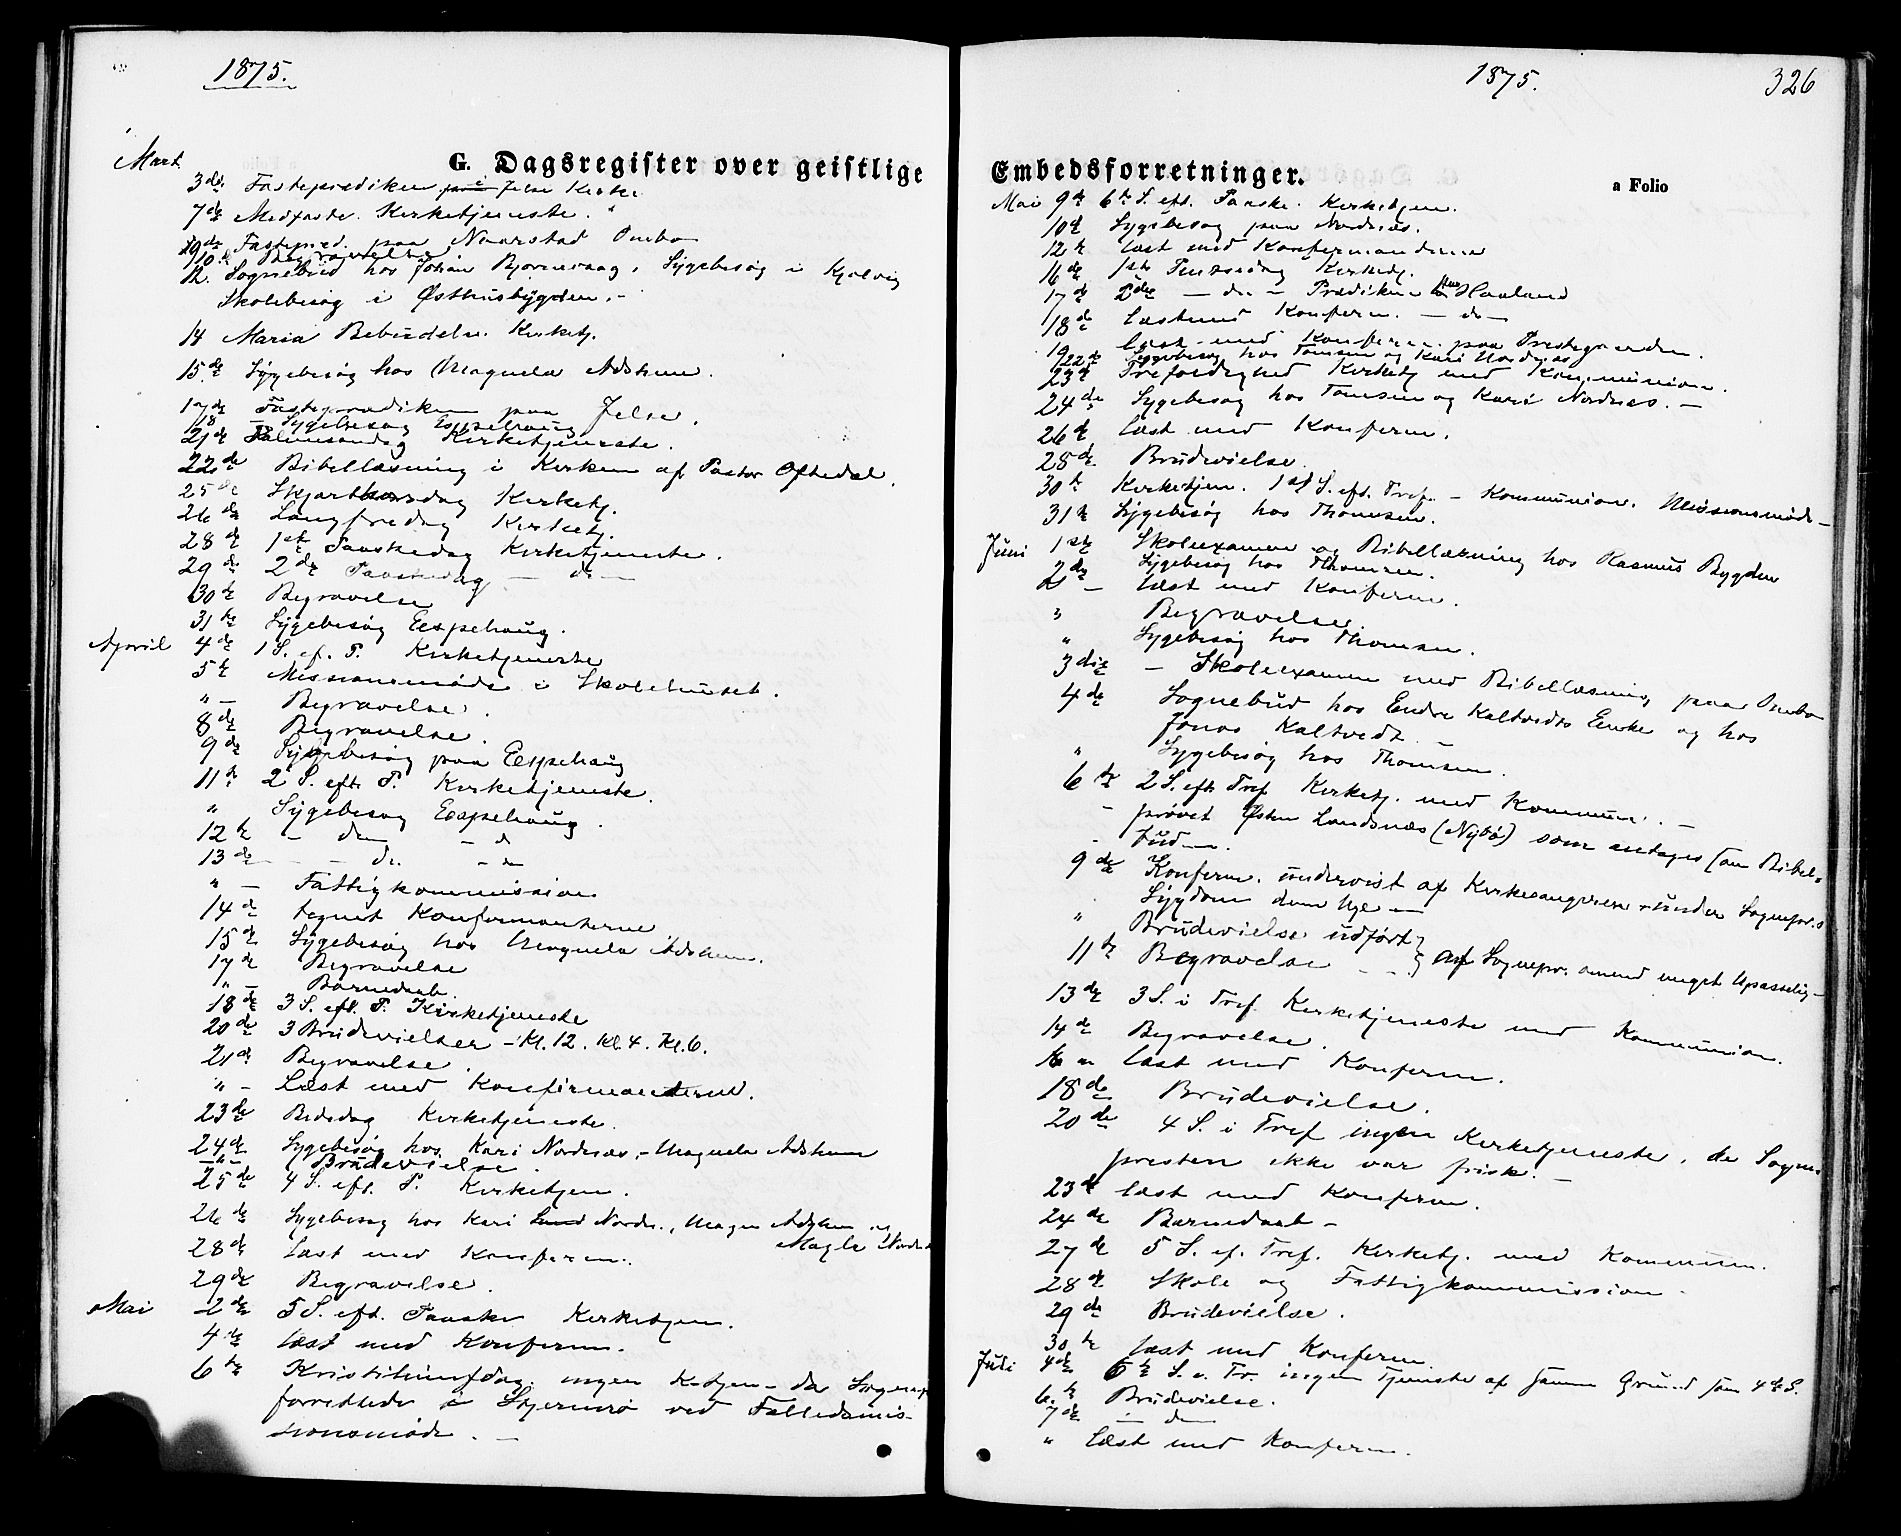 1875.
Mart.
G. Dagsregister over geistlige
3die Fastepræcliken paa Jelse Kirke
7de Midfaste. Kirketjeneste.
10de Fastepræd. paa Naarstad Ombo
Begravelse
12. Sognebud hos Johan Bjornevaag, Sygebesøg i Kjølvig
Skolebesøg i Østhusbygden.-
14 Maria Bebudelse. Kirketj.
15de Sygebesøg hos Magnela Adsheim.
17de Fasteprædiken paa Jelse.
18 - Sygebesøg Espehaug
21de Palmesøndag Kirketjeneste.
22de Bibellæsning i Kirken af Pastor Oftedal.
25de Skjærthorsdag Kirketj.
26de Langfredag Kirketj.
28de 1ste Paaskedag Kirketjeneste.
29de 2den Paaskedag - do -
30te Begravelse
31te Sygebesøg Eespehaug.
April 4de 1 S. ef. P. Kirketjeneste
5te Missionsmøde i Skolehuset.
" - Begravelse.
8de Begravelse.
9de Sygebesøg paa Espehaug
11te 2 S. eft. P. Kirketjeneste.
" Sygebesøg Eespehaug.
12te - do - d
13de - - do - do
" - Fattigkommission
14de tegnet Konfirmanterne
15de Sygebesøg hos Magnela Adsheim.
17de Begravelse
" - Barnedaab.
18de 3 S. eft. P. Kirketjeneste
20de 3 Brudevielser - Kl. 12. Kl. 4. Kl. 6.
21de Begravelse.
" - Læst med Konfirmanterne.
23de Bededag Kirketjeneste.
24de Sygebesøg hos Kari Nordnæs, - Magnela Adsheim
- " - Brudevielse.
25de 4 S. eft. P. Kirketjen.
26de Sygebesøg hos Kari Nordn., Magn Adsheim og
Magla Nordn
28de Læst med Konferm.
29de Begravelse.
Mai 2de 5 S. eft. Paaske Kirketjen.
4de læst med Konferm.
6te Kristihimfdag. ingen K-tjen - da Sognep
forrettede i Skjernerø ved Fælledsmis-
sionsmøde. -
1875.
326
Embedsforretninger.
a Folio
Mai 9de 6te S. eft. Paaske. Kirketjen.
10de Sygebesøg paa Nordnæs.
12te læst med Konfermanderne
16de 1ste Pintsedag Kirketj.
17de 2den - do - Prædiken Haaland
18de Læst med Konferm. - do -
19 læst med Konferm. paa Prestegaarden.
22de Sygebesøg hos Tomsen og Kari Nordnæs
23de Trefoldighed Kirketj med Kommunion.
24de Sygebesøg hos Tomsen og Kari Nordnæs. -
26de læst med Konferm.
28de Brudevielse.
30te Kirketjen. 1ste S. eft. Tref. - Kommunion. Missionsmøde -
31te Sygebesøg hos Thomsen.
Juni 1ste Skoleexamen og Bibellæsning hos Rasmus Bygden
2den Sygebesøg hos Thomsen.
- læst med Konferm.
" Begravelse.
" Sygebesøg hos Thomsen.
3die - Skoleexamen med Bibellæsning paa Ombo
4de Sognebud hos Endre Kaltvedts Enke og hos
Jonas Kaltvedt. -
" Sygebesøg hos Thomsen.
6te 2 S. eft Tref Kirketj. med Kommun. -
- prøvet Østen Landsnæs (Nybø) som antages som Bibel-
- bud -.
9de Konferm. undervist af Kirkesangeren under Sognepr.s
Sygdom den Uge -
" Brudevielse udført
11te Begravelse - - af Sognepr. omend meget Upasselig -
13de 3 S. i Tref. Kirketjeneste med Kommunion.
14de Begravelse.
16 - læst med Konferm.
18de Brudevielse.
20de 4 S. i Tref ingen Kirketjeneste, da Sogne-
presten ikke var frisk. -
23de læst med Konferm.
24de Barnedaab -
27de 5 S. ef. Tref. Kirketj. med Kommun.
28de Skole og Fattigkommission -
29de Brudevielse.
30te læst med Konferm.
Juli 4de 6te S. e. Tr. ingen Tjeneste af samme Grund som 4de S.
6te Brudevielse.
7de - do -
" Læst med Konferm.